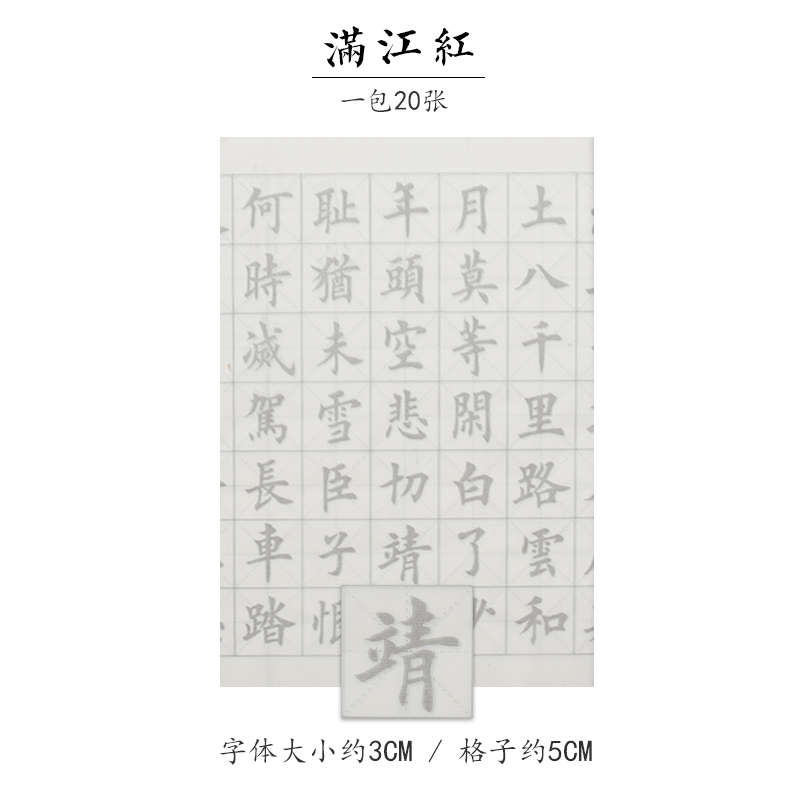 滿江紅
一包20张
土八千里路雲和
月莫等閑白了少
年頭空悲切靖
耻猶未雪臣子恨
何時滅駕長車踏
靖
字体大小约3CM / 格子约5CM